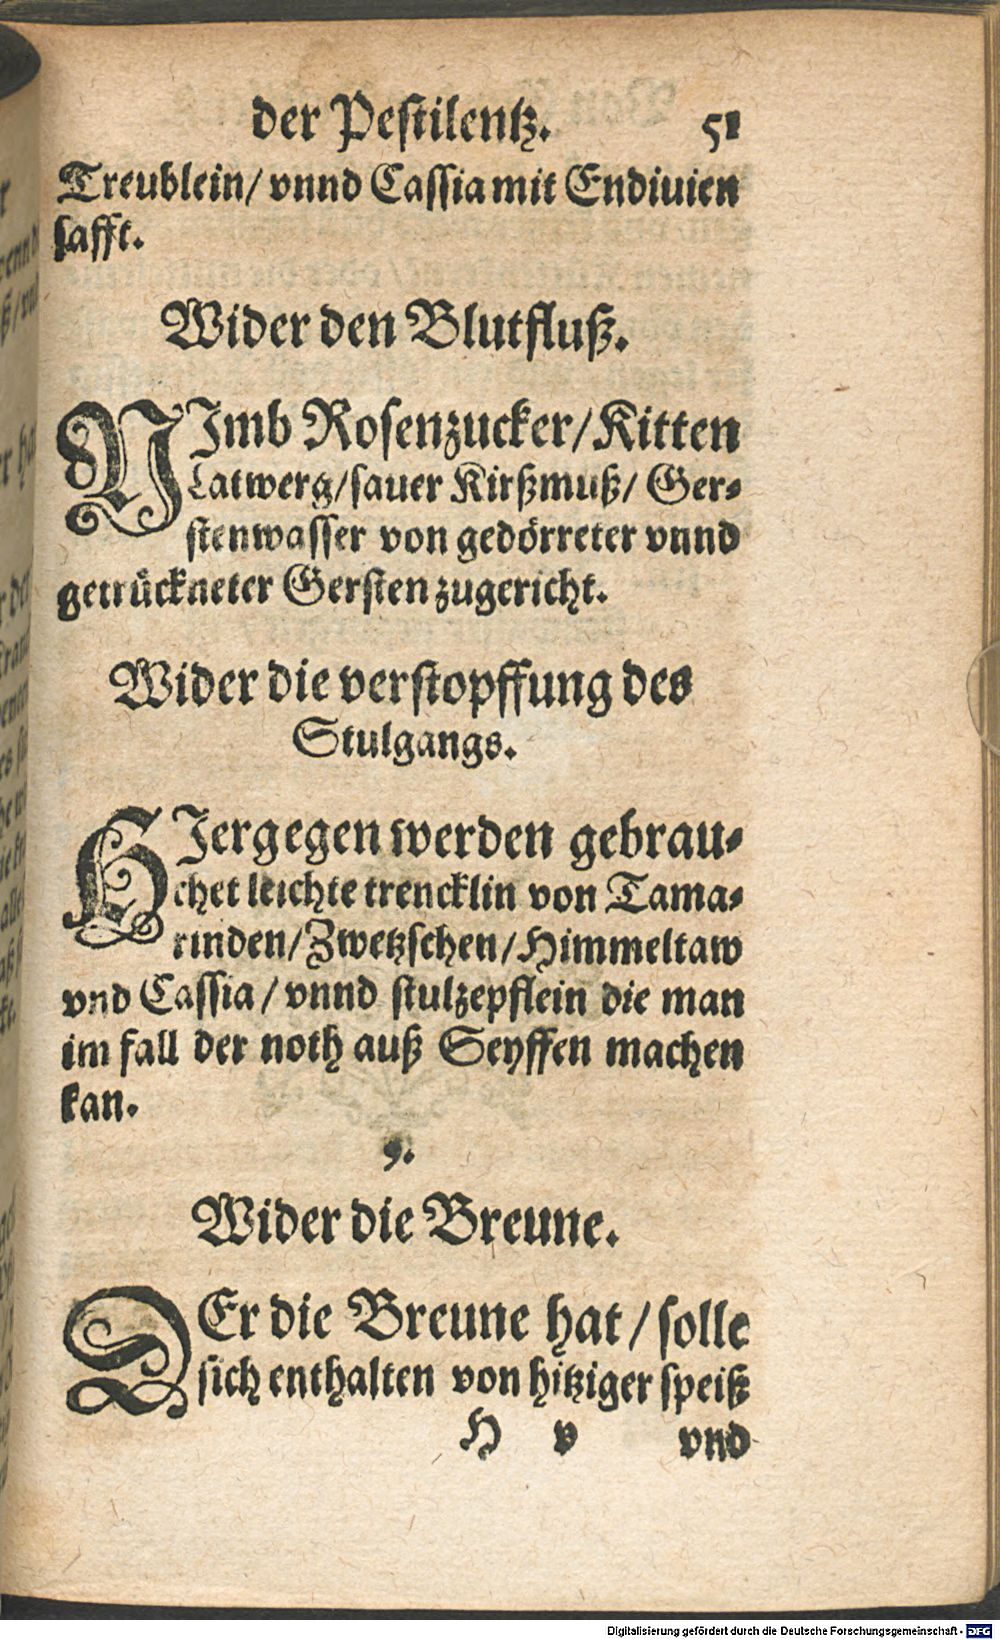 der Pestilentz. 51
Treublein/ vnnd Cassia mit Endiuien
safft.
Wider den Blutfluß.
NImb Rosenzucker/ Kitten
Latwerg/ sauer Kirßmuß/ Ger-
stenwasser von gedörreter vnnd
getrückneter Gersten zugericht.
Wider die verstopffung des
Stulgangs.
HIergegen werden gebrau-
chet leichte trencklin von Tama-
rinden/ Zwetzschen/ Himmeltaw
vnd Cassia/ vnnd stulzepflein die man
im fall der noth auß Seyffen machen
kan.
9.
Wider die Breune.
DEr die Breune hat/ solle
sich enthalten von hitziger speiß
H v vnd
Digitalisierung gefördert durch die Deutsche Forschungsgemeinschaft - DFG